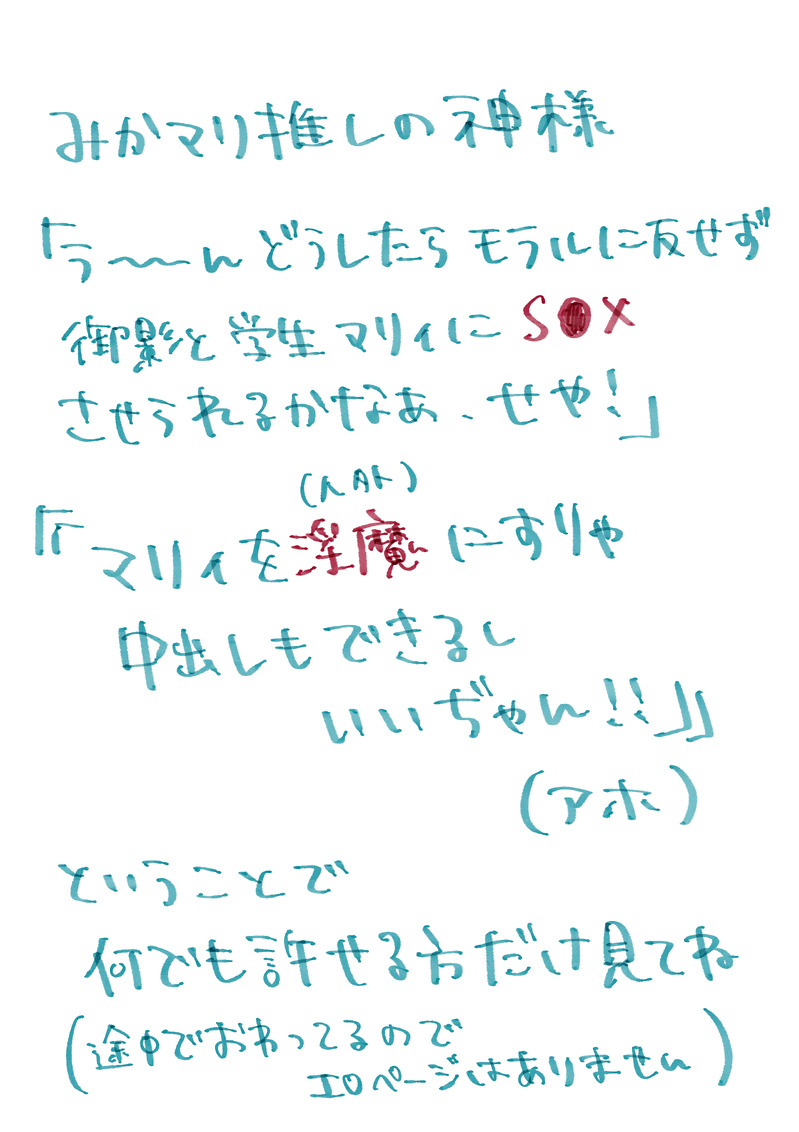 みかマリ推しの神様
「う〜〜んどうしたらモラルに反せず
御影と学生マリィにS●X
させられるかなあ、せや!」
(人外)
『マリィを淫魔にすりゃ
中出しもできるし
いいぢゃん!!』
(アホ)
ということで
何でも許せる方だけ見てね
(途中でおわってるので
エロページはありません)